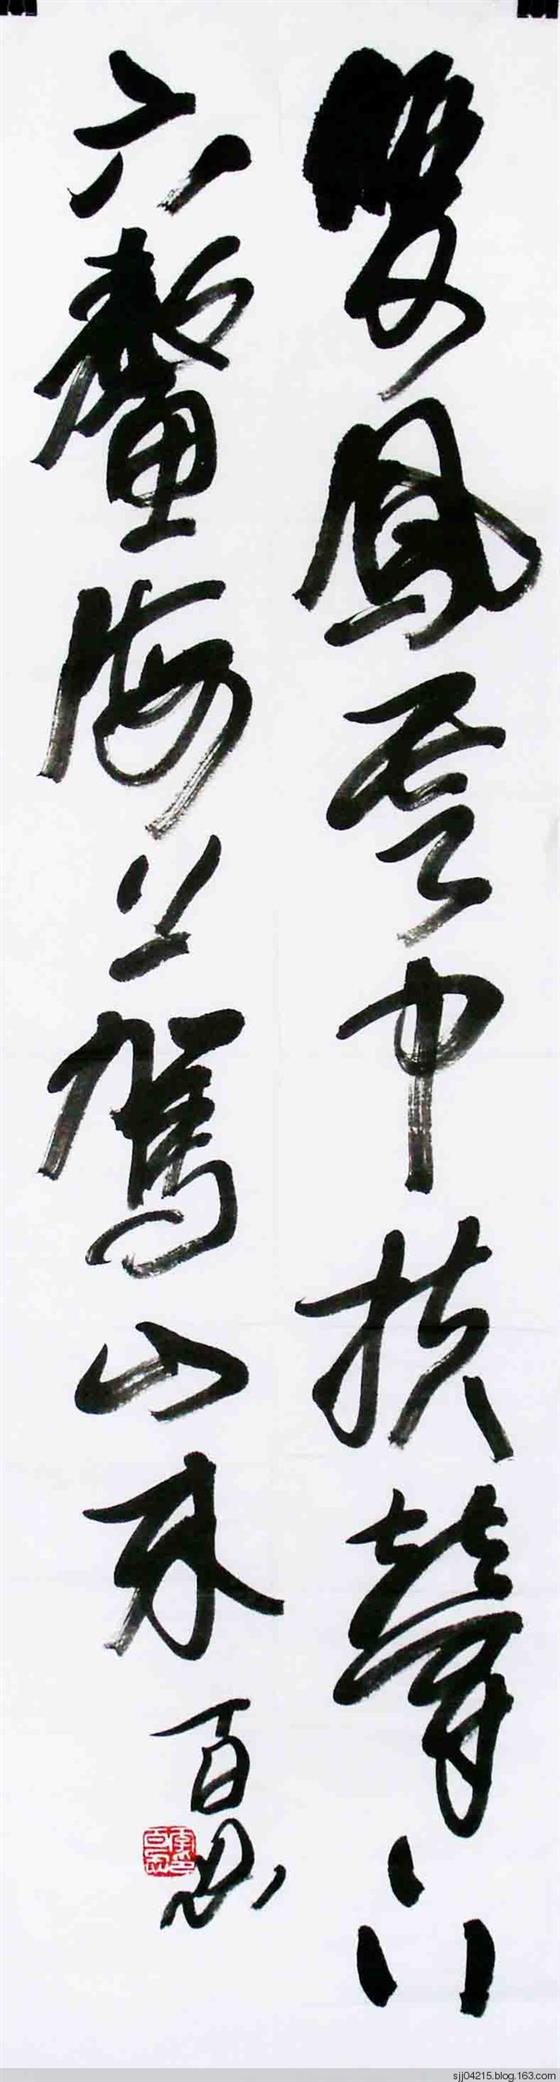 雙鳳雲中扶輦下
六鰲海上駕山来
百忍
sjj04215.blog.163.com